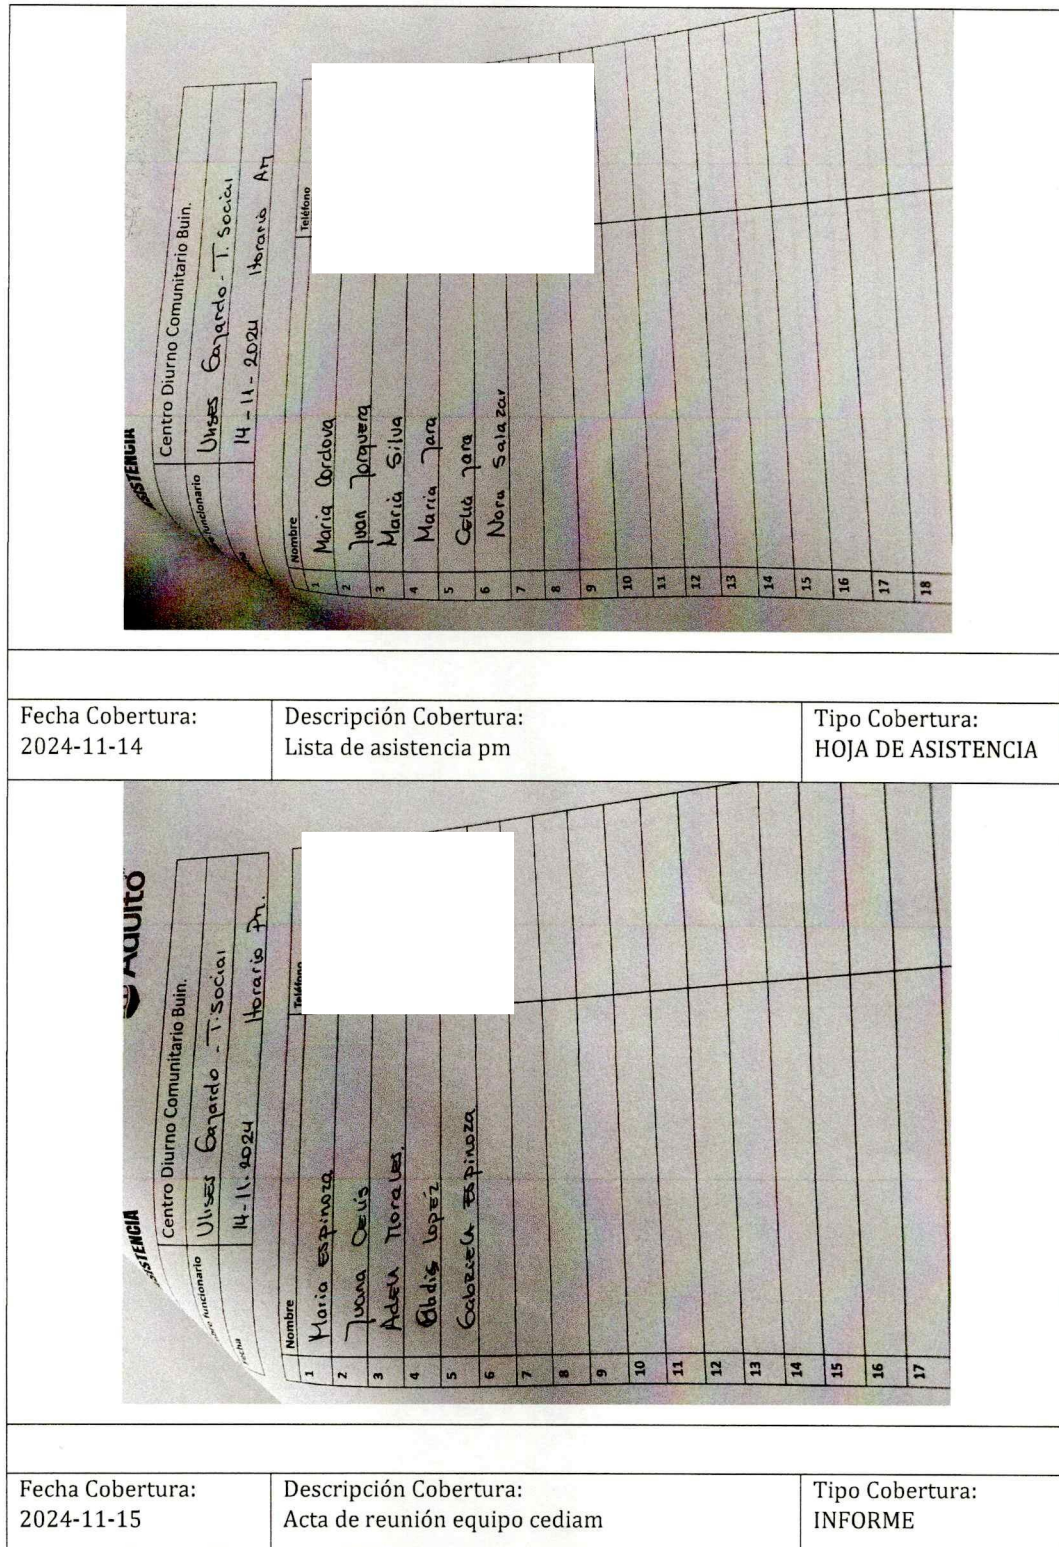 ASISTENCIA
Centro Diurno Comunitario Buin.
funcionario Ulises Gajardo - T. Social
14-11-2024 Horario Am
Nombre Teléfono
1 Maria Cordova
2 Juan Jorquera
3 Maria Silva
4 Maria Jara
5 Celia Jara
6 Nora Salazar
7
8
9
10
11
12
13
14
15
16
17
18
Fecha Cobertura: Descripción Cobertura: Tipo Cobertura:
2024-11-14 Lista de asistencia pm HOJA DE ASISTENCIA
Adulto
ISTENCIA
Centro Diurno Comunitario Buin.
funcionario Ulises Gajardo - T. social
Fecha 14-11-2024 Horario Pm.
Nombre Teléfono
1 Maria Espinoza
2 Juana Celis
3 Adela Morales.
4 López
5 Gabriela Espinoza
6
7
8
9
10
11
12
13
14
15
16
17
Fecha Cobertura: Descripción Cobertura: Tipo Cobertura:
2024-11-15 Acta de reunión equipo cediam INFORME